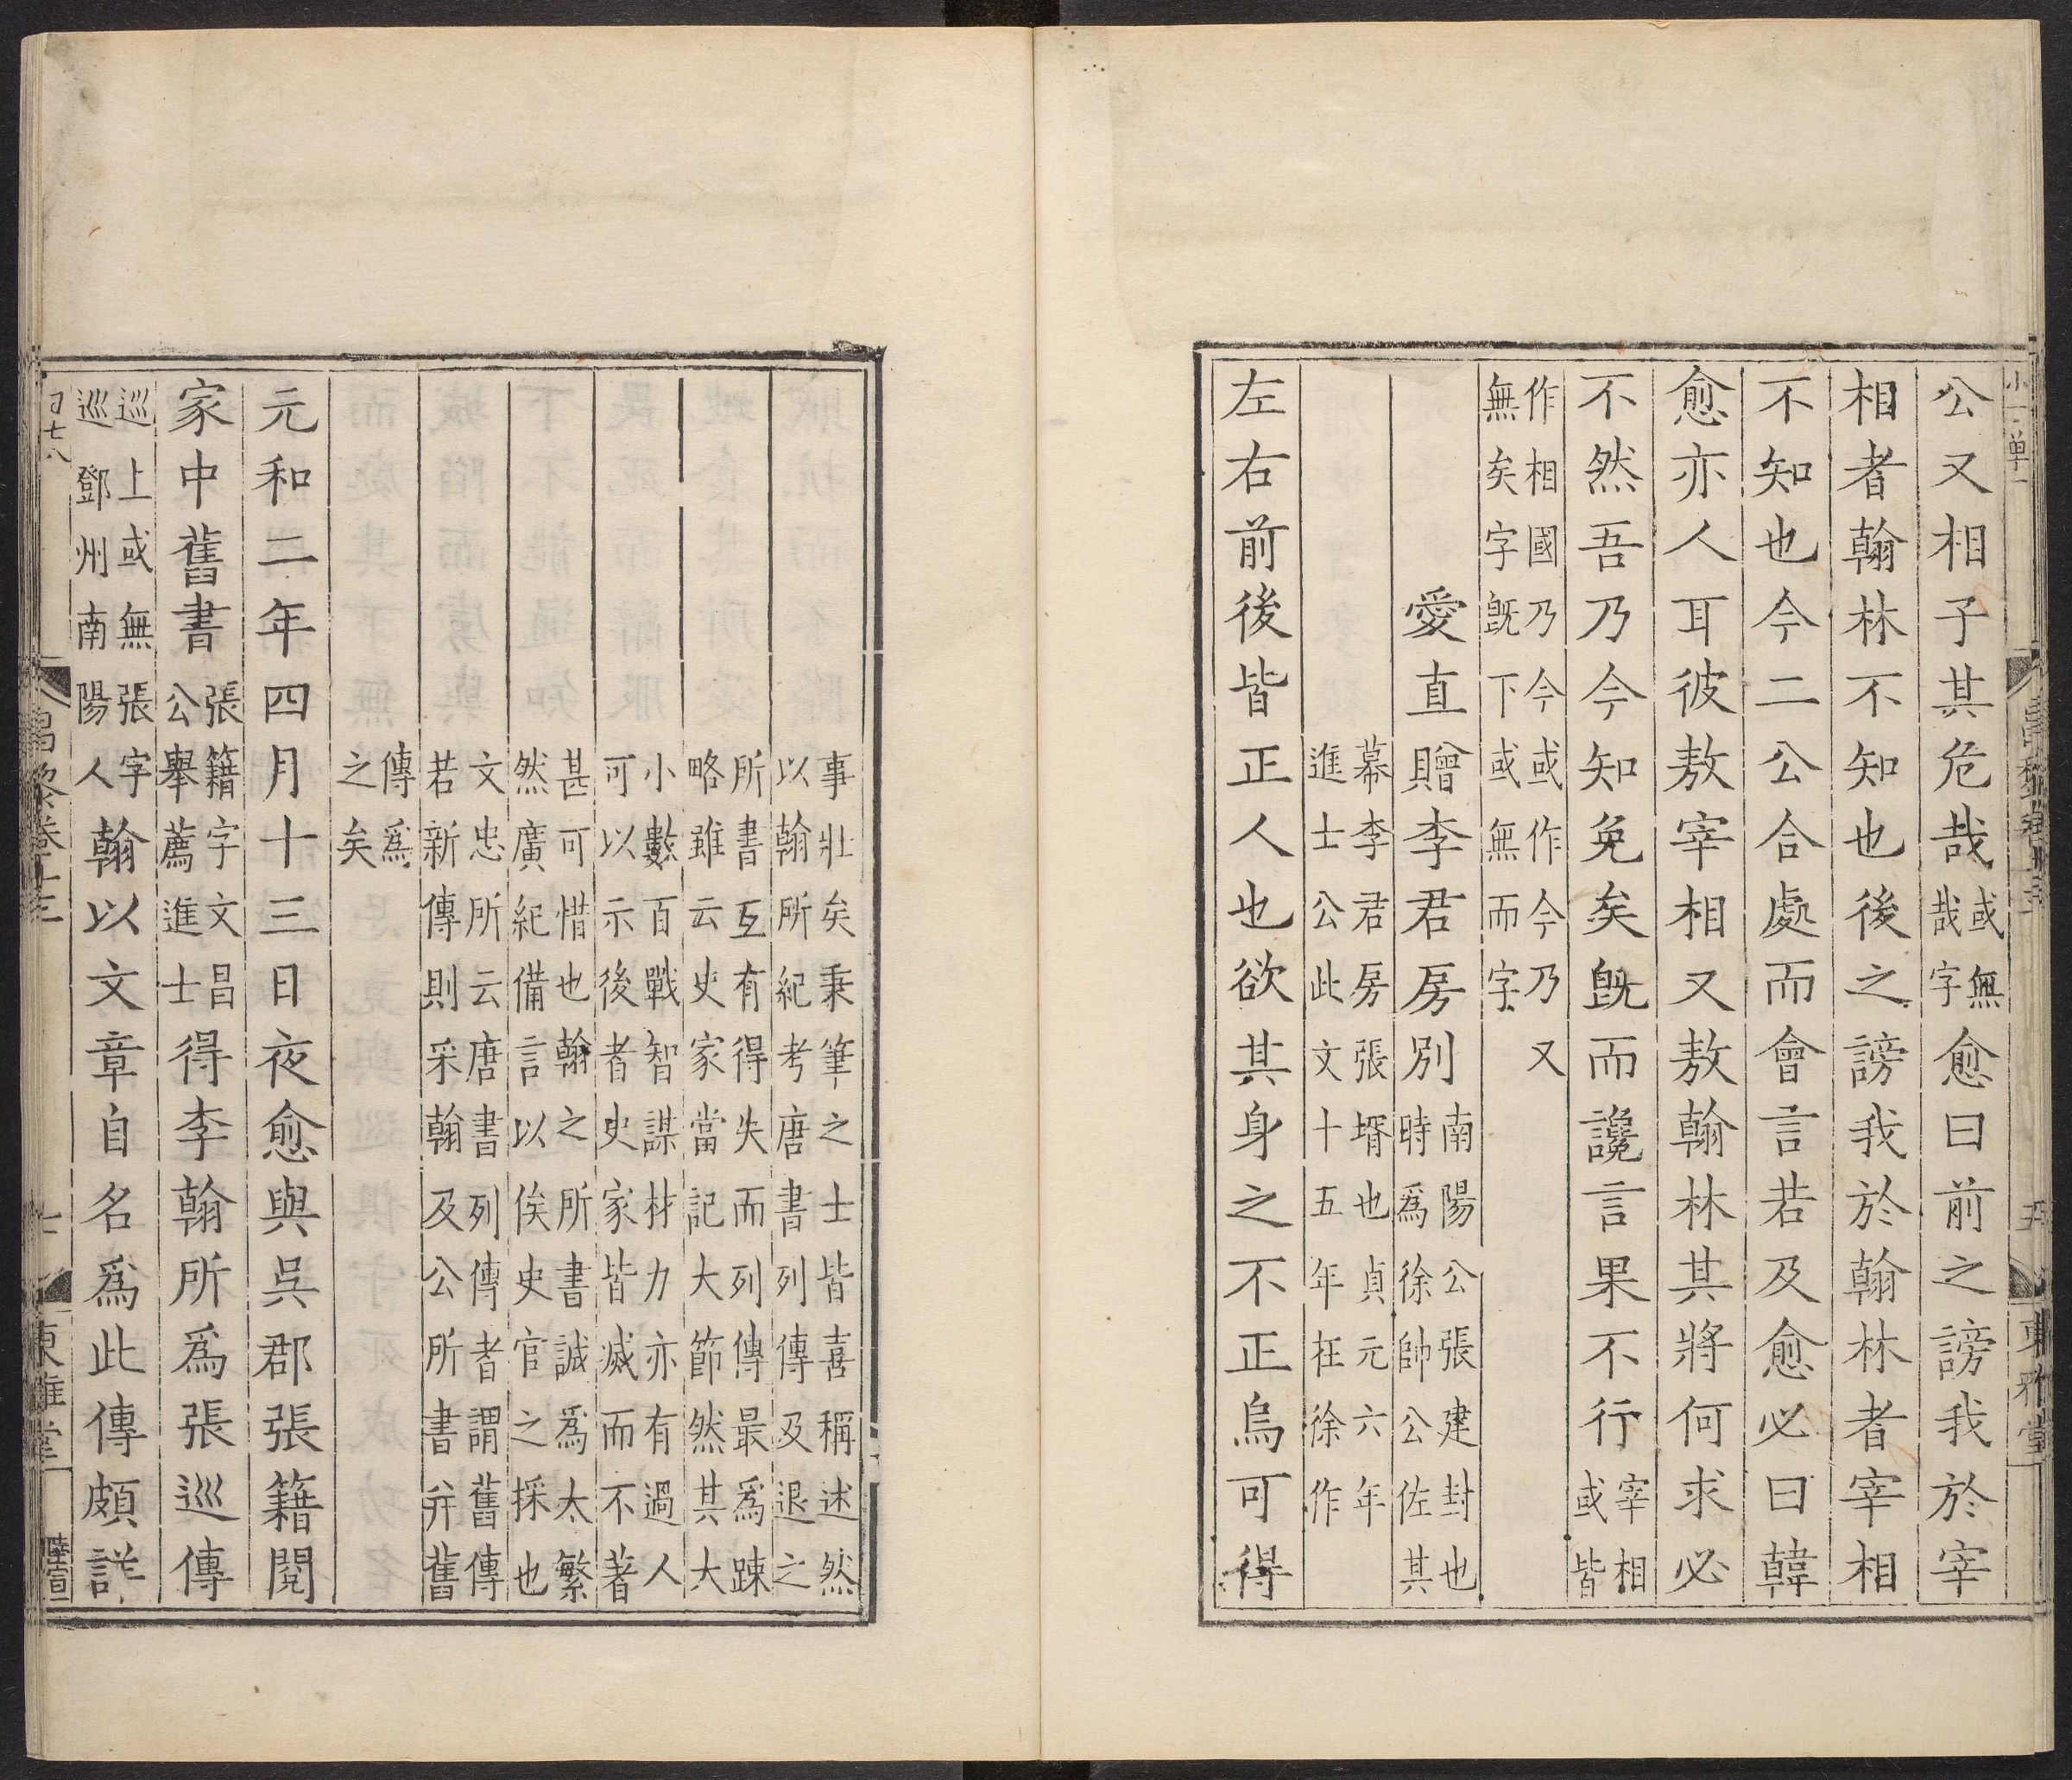 公又相子其危哉或無哉字愈曰前之謗我於宰
相者翰林不知也後之謗我於翰林者宰相
不知也今二公合處而會言若及愈必曰韓
愈亦人耳彼敖宰相又敖翰林其將何求必
不然吾乃今知免矣旣而讒言果不行宰相或皆
作相國乃今或作今乃又
無矣字旣下或無而字
愛直贈李君房別南陽公張建封也時爲徐帥公佐其
幕李君房張壻也貞元六年
進士公此文十五年在徐作
左右前後皆正人也欲其身之不正烏可得
事壯矣秉筆之士皆喜稱述然
以翰所紀考唐書列傳及退之
所書互有得失而列傳最爲踈
略雖云史家當記大節然其大
小數百戰智謀材力亦有過人
可以示後者史家皆滅而不著
甚可惜也翰之所書誠爲太繁
然廣紀備言以俟史官之採也
文忠所云唐書列傳者謂舊傳
若新傳則采翰及公所書并舊
傳爲
之矣
元和二年四月十三日夜愈與吳郡張籍閱
家中舊書張籍字文昌公舉薦進士得李翰所爲張巡傳
巡上或無張字巡鄧州南陽人翰以文章自名爲此傳頗詳
昌黎卷十三
七
東雅堂
陸宣
五
東雅堂